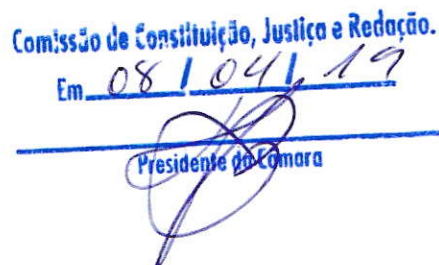 Comissão de Constituição, Justiça e Redação.
Em 08 / 04 / 19
Presidente da Câmara